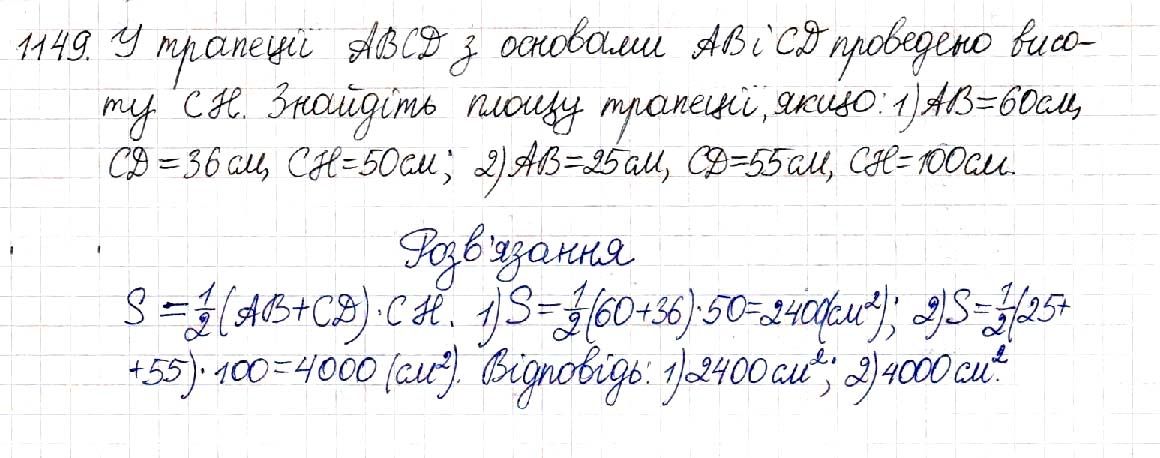 1149. У трапеції ABCD з основами AB і CD проведено висо-
ту CH. Знайдіть площу трапеції, якщо: 1) AB=60см,
CD=36см, CH=50см; 2) AB=25см, CD=55см, CH=100см.
Розв'язання
S=1/2(AB+CD)·CH. 1) S=1/2(60+36)·50=2400(см²); 2) S=1/2(25+
+55)·100=4000(см²). Відповідь: 1) 2400см²; 2) 4000см².